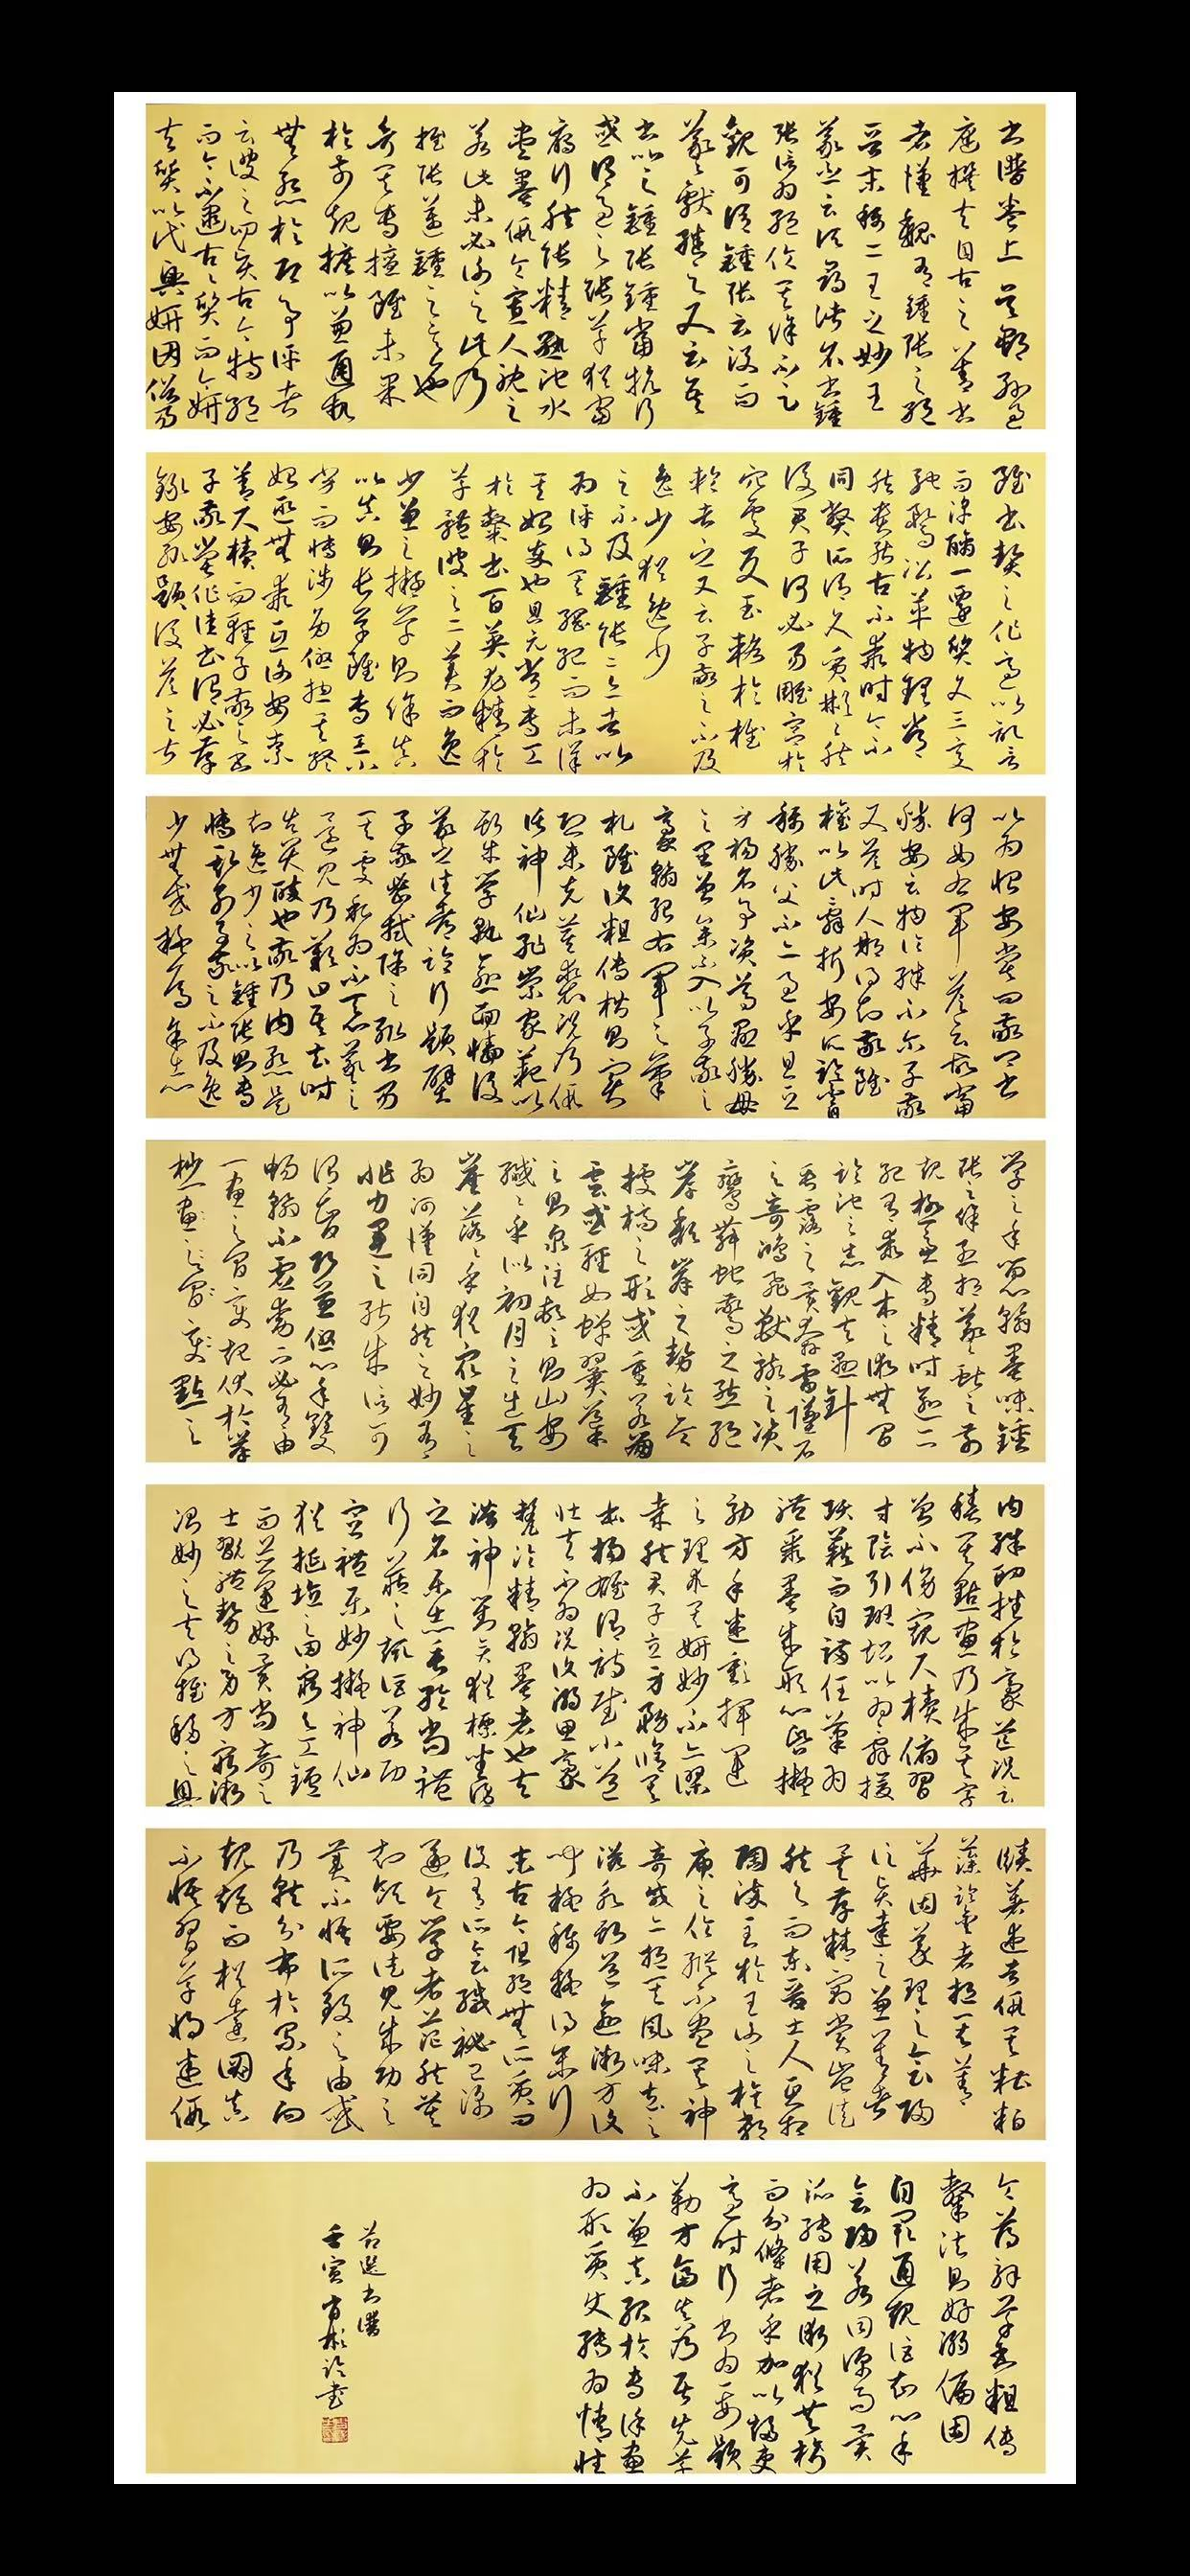 書譜卷上吳郡孫過
庭撰夫自古之善書
者漢魏有鍾張之絕
晉末稱二王之妙王
羲之云頃尋諸名書鍾
張信為絕倫其餘不足
觀可謂鍾張云沒而
羲獻繼之又云吾
書比之鍾張鍾當抗行
或謂過之張草猶當
鴈行然張精熟池水
盡墨假令寡人耽之
若此未必謝之此乃
推張邁鍾之意也
考其專擅雖未果
於前規摭以兼通故
無慙於即事評者
云彼之四賢古今特絕
而今不逮古古質而今妍
夫質以代興妍因俗易
雖書契之作適以記言
而淳醨一遷質文三變
馳騖沿革物理常
然貴能古不乖時今不
同弊所謂文質彬彬然
後君子何必易雕宮於
穴處反玉輅於椎
輪者乎又云子敬之不及
逸少猶逸少
之不及鍾張意者以
為評得其綱紀而未詳
其始卒也且元常專工
於隸書百英尤精於
草體彼之二美而逸
少兼之擬草則餘真
比真則長草雖專工小
劣而博涉多優總其終
始匪無乖互謝安素
善尺牘而輕子敬之書
子敬嘗作佳書謂必存
錄安輒題後答之甚
以為恨安嘗問敬卿書
何如右軍答云故當
勝安云物論殊不爾子敬
又答時人那得知敬雖
權以此辭折安所鑒自
稱勝父不亦過乎且立
身揚名事資尊顯勝母
之里曾參不入以子敬之
豪翰紹右軍之筆
札雖復粗傳楷則實
恐未克箕裘況乃假
託神仙恥崇家範以
斯成學孰愈面墻後
羲之往都臨行題壁
子敬密拭除之輒書易
其處私為不惡羲之
還見乃歎曰吾去時
真大醉也敬乃內慙是
知逸少之比鍾張則專
博斯別子敬之不及逸
少無或疑焉余志
學之年留心翰墨味鍾
張之餘烈挹羲獻之前
規極慮專精時逾二
紀有乖入木之術無間
臨池之志觀夫懸針
垂露之異奔雷墜石
之奇鴻飛獸駭之資
鸞舞蛇驚之態絕
岸頹峯之勢臨危
據槁之形或重若崩
雲或輕如蟬翼導
之則泉注頓之則山安
纖纖乎似初月之出天
崖落落乎猶眾星之
列河漢同自然之妙有
非力運之能成信可
謂智巧兼優心手雙
暢翰不虛動下必有由
一畫之間變起伏於峯
杪一畫之間變點之
內殊衂挫於豪芒況云
積其點畫乃成其字
曾不傍窺尺牘俯習
寸陰引班超以為辭援
項籍而自滿任筆為
體聚墨成形心昏擬
效方手迷揮運
之理求其妍妙不亦謬
哉然君子立身務修其
本揚雄謂詩賦小道
壯夫不為況復溺思豪
氂淪精翰墨者也夫
潛神對奕猶標坐隱
之名樂志垂綸尚體
行藏之趣詎若功
宣禮樂妙擬神仙
猶埏埴之罔窮與工鑪
而並運好異尚奇之
士翫體勢之多方窮微
測妙之夫得推移之奧
賾著述者假其糟粕
藻鑒者挹其菁
華固義理之會歸
信賢達之兼善者
矣存精寓賞豈徒
然與而東晉士人互相
陶染至於王謝之族郗
庾之倫縱不盡其神
奇咸亦挹其風味去之
滋永斯道愈微方復
聞疑稱疑得末行
末古今阻絕無所質問
設有所會緘祕已深
遂令學者茫然莫
知領要徒見成功之
美不悟所致之由或
乃就分布於累年向
規矩而猶遠圖真
不悟習草將迷假
令薄解草書粗傳
隸法則好溺偏固
自閡通規詎知心手
會歸若同源而異
派轉用之術猶共樹
而分條者乎加以趨變
適時行書為要題
勒方畐真乃居先草
不兼真殆於專謹畫
為形質使轉為情性
節選書譜
壬寅